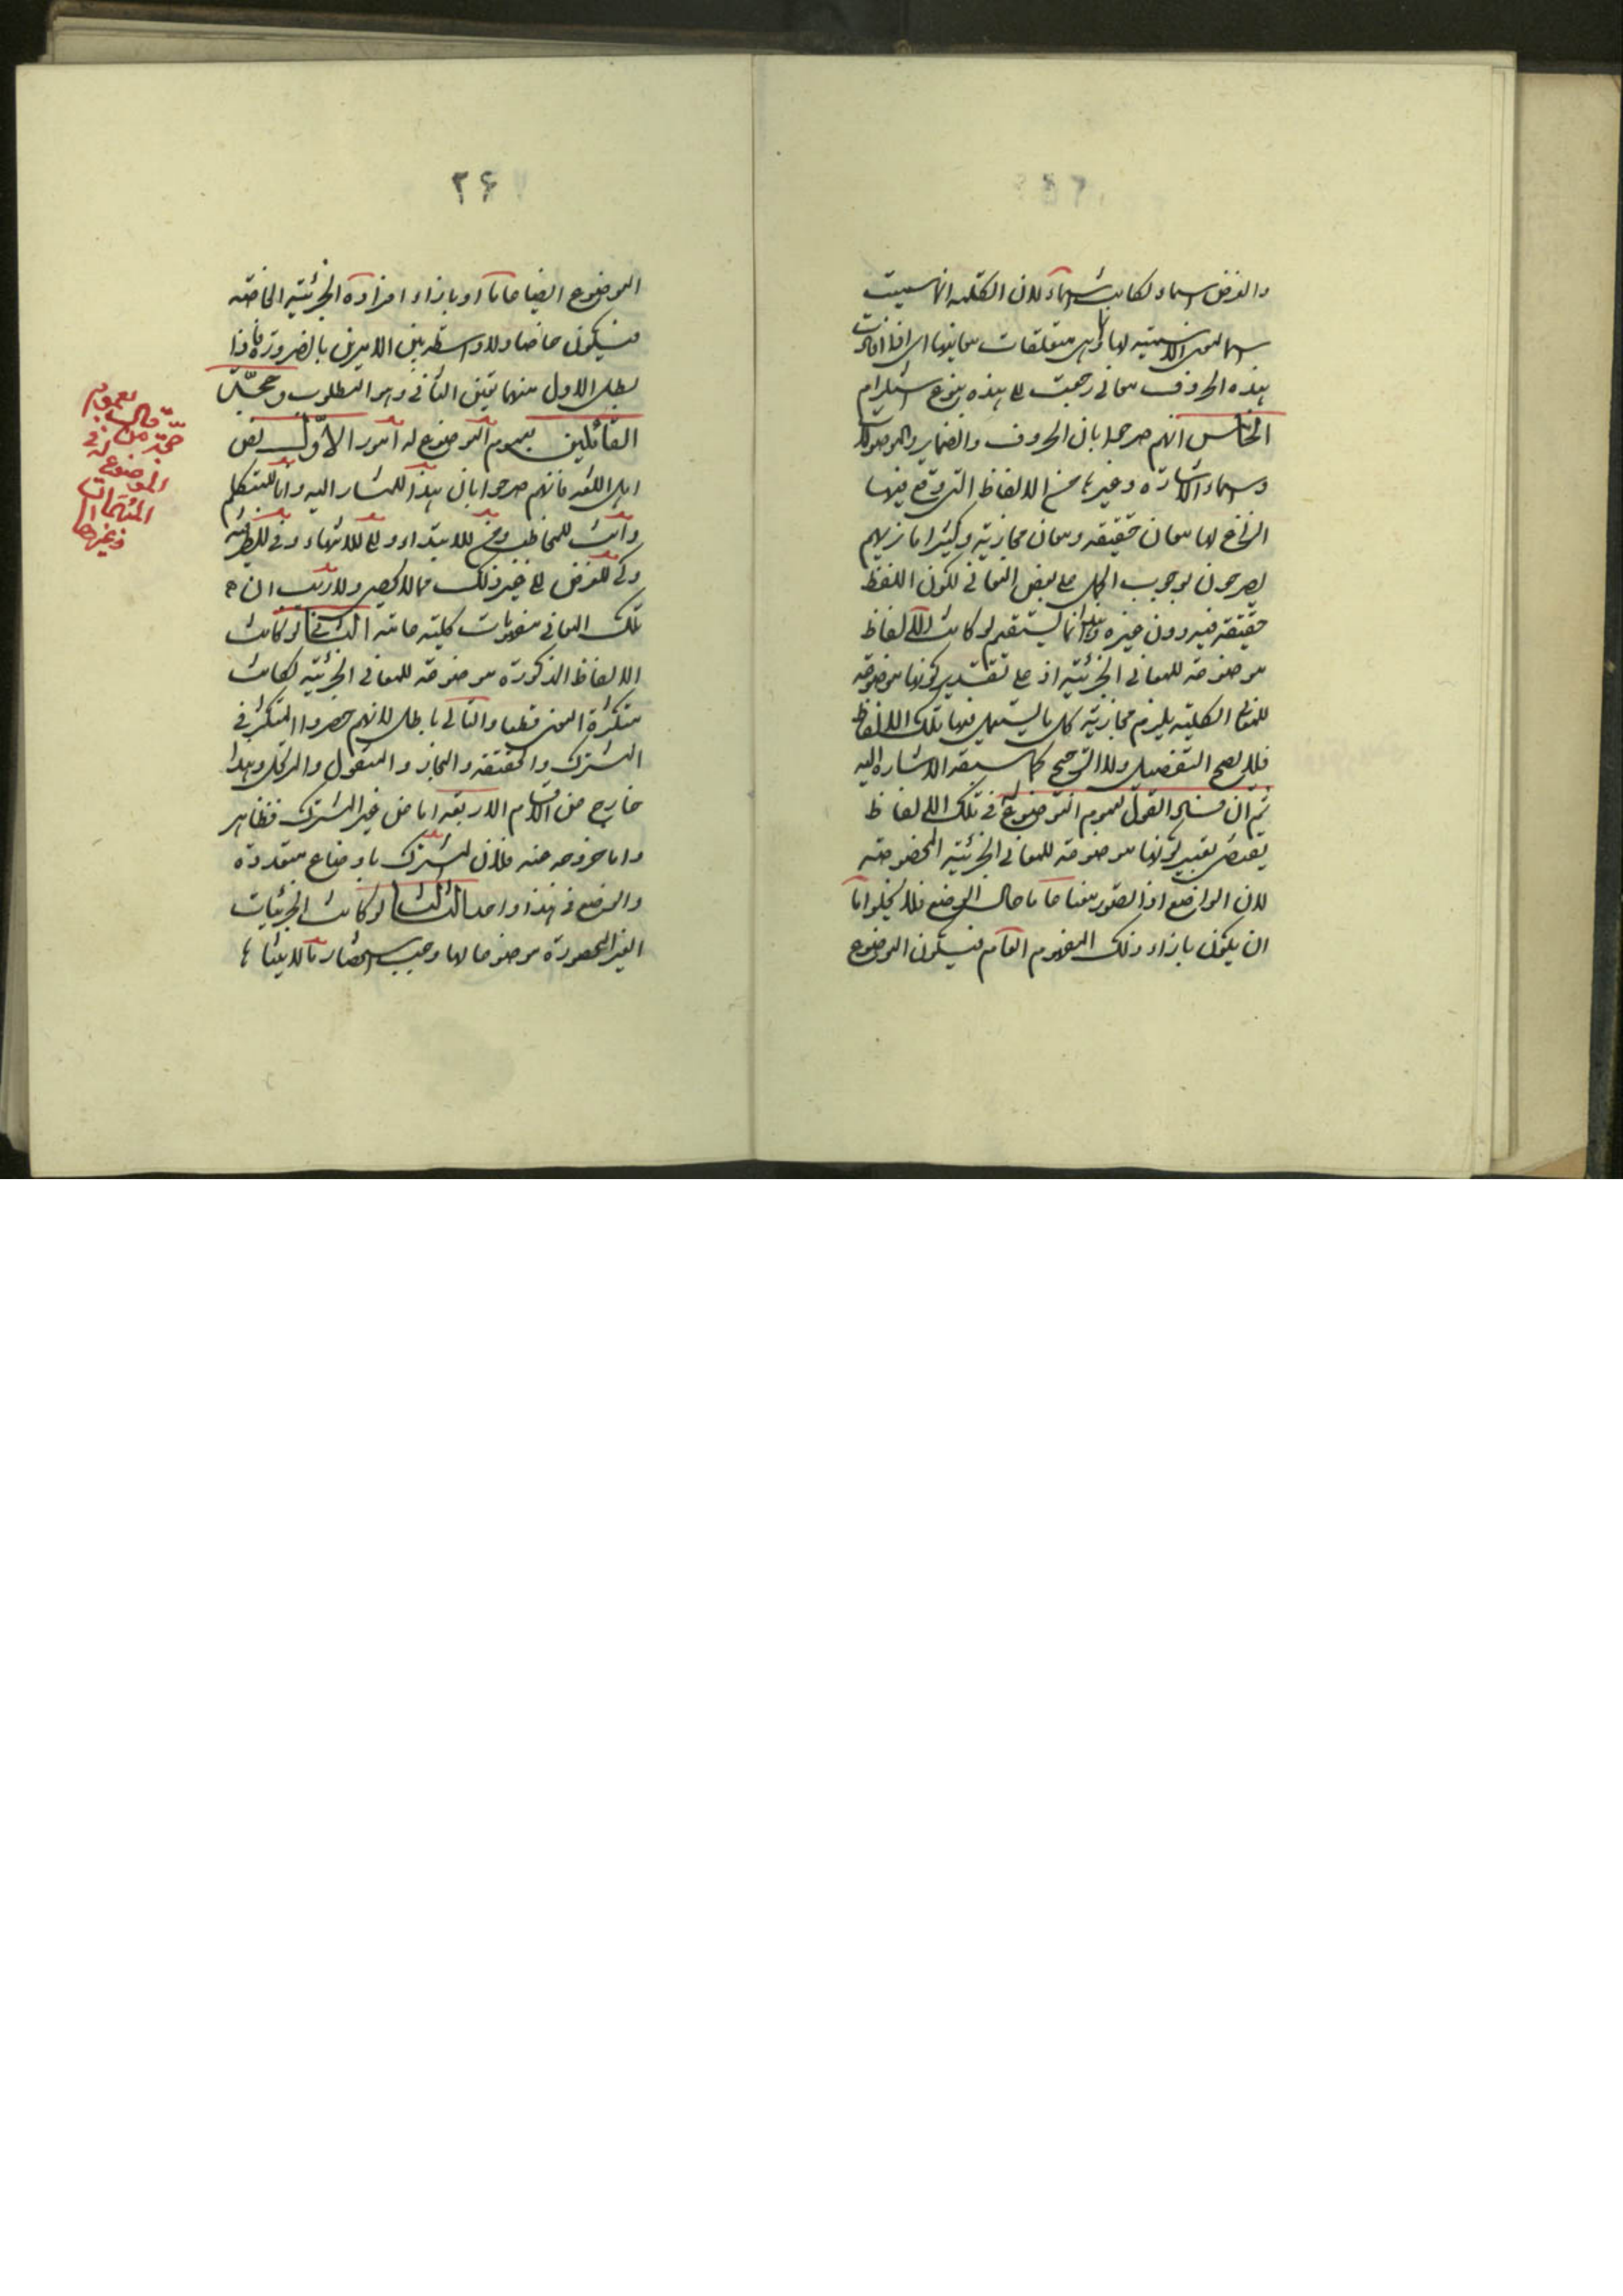 والغرض اسماء لكانت اسماء لان الكلمة انما سميت
اسما لمعنى الاسمية لها وانما هى متعلقات معانيها اى اذا افادت
هذه الحروف معانى رجعت الى هذه بنوع استلزام
الخامس انهم صرحوا بان الحروف والضماير والموصولات
واسماء الاشارة وغيرها من الالفاظ التى وقع فيها
النزاع لها معان حقيقة ومعان مجازية وكثيرا ما نريهم
يصرحون بوجوب الحمل على بعض المعانى لكون اللفظ
حقيقة فيه دون غيره وهذا انما يستقيم لو كانت الالفاظ
موضوعة للمعانى الجزئية اذ على تقدير كونها موضوعة
للمعانى الكلية يلزم مجازية كل ما يستعمل فيها تلك الالفاظ
فلا يصح التفصيل ولا الترجيح كما سبقه الاشارة اليه
ثم ان فساد القول بعموم الموضوع له فى تلك الالفاظ
يقتضى تعيين كونها موضوعة للمعانى الجزئية المخصوصة
لان الواضع اذا تصور معنا عاما حال الوضع فلا يخلوا اما
ان يكون بازاء ذلك المفهوم العام فيكون الموضوع
٢۶
الموضوع ايضا عاما او بازاء افراده الجزئية الخاصة
فيكون خاصا ولا واسطة بين الامرين بالضرورة فاذا
بطل الاول منهما تعين الثانى وهو المطلوب وحجة
القائلين بعموم الموضوع له امور الاول نص
اهل اللغة فانهم صرحوا بان هذا للمشار اليه وانا للمتكلم
وانت للمخاطب ومن للابتداء والى للانتهاء وفى للظرفية
وكى للغرض الى غير ذلك مما لا يحصى ولا ريب ان
تلك المعانى مفهومات كلية عامة الثانى لو كانت
الالفاظ المذكورة موضوعة للمعانى الجزئية لكانت
متكثرة المعنى قطعا والتالى باطل لانهم حصروا المتكثر فى
المشترك والحقيقة والمجاز والمنقول والمرتجل وهذا
خارج من الاقسام الاربعة اما من غير المشترك فظاهر
واما خروجه منه فلان المشترك باوضاع متعددة
والوضع فى هذا واحد الثالث لو كانت الجزئيات
الغير المحصورة موضوعا لها وجب استحضارها للايتناء
حجة من قال بعموم
الموضوع له فى
المبهمات
وغيرها